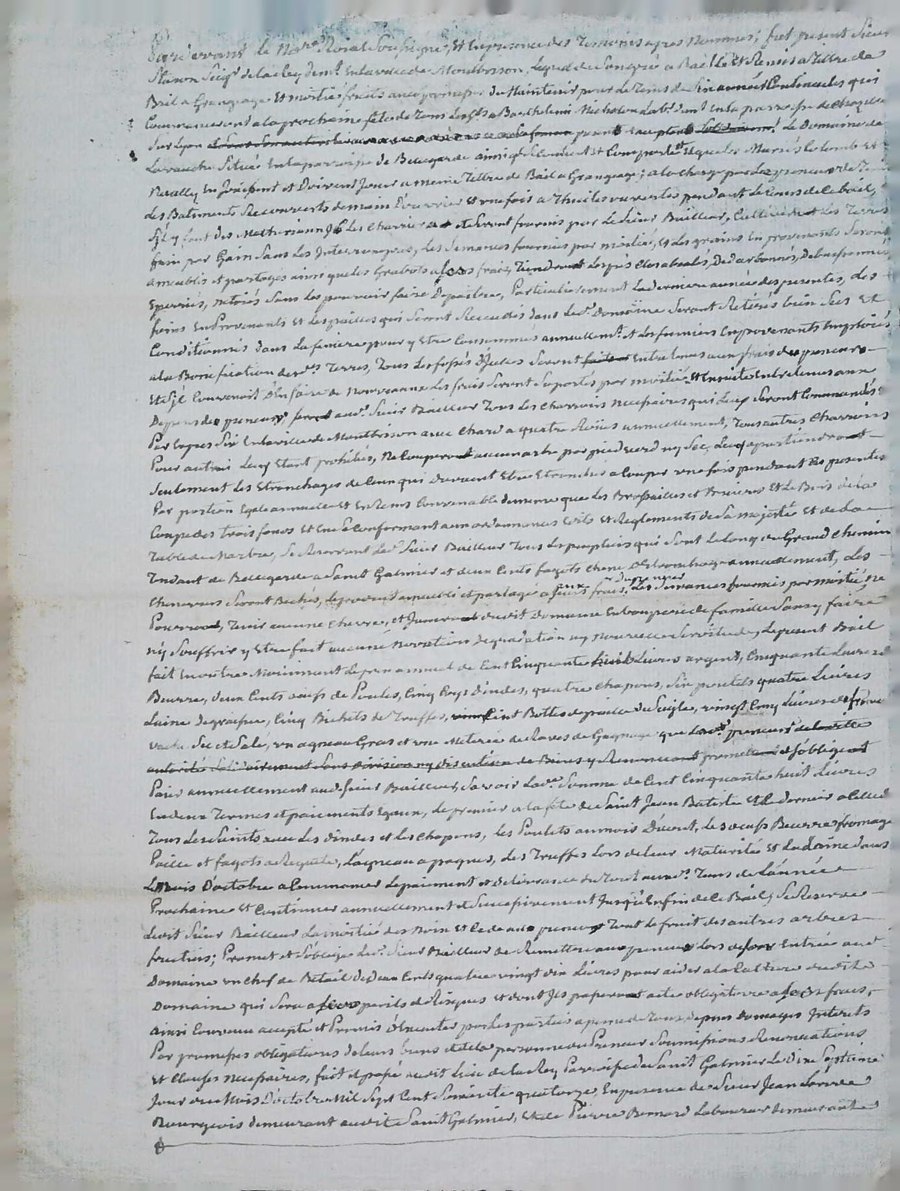 Pardevant le No.re Royal Soussigné, Et En presence des Temoins apres Nommés; fut present Sieur
Seig.r de la Rey dem.t En la ville de Montbrison, Lequel de Son gré a Baillé Et Remis a Tiltre de
Bail a Grangeage Et moitié fruits avec promesse de Maintenir pour le Tems de années Continuelles qui
Commenceront a la prochaine fête de Tous les Sts a Barthelemi Nicholon Lab.r dem.t En la parroisse de
Sur Lyon Le Domaine de
Situé En la parroisse de Bellegarde ainsi qu'il Conciste Et Comporte Et que les Mariés Colomb Et
En Joüissent et Doivent Joüir a meme Tiltre de Bail a Grangeage; a la charge par les preneurs de
des Batiments Recouverts de main D'ouvrier Et une fois a Thuiles ouvertes pendant le Cours de ce bail,
S'il y faut des Materiaux Les Charrier Et Seront fournis par le Sieur Bailleur, Cultiver les Terres
Sans Les Interrompre, les Semances fournies par moitié, Et les grains En provenants Seront
ameublis et partagés ainsi que les Grabots a frais, Tiendront Les prés Clos
Sans Les pouvoir faire Depaitre, Particulierement La derniere année des presentes, des
foins En Provenants Et Les pailles qui Seront Recuëillés dans le d. Domaine Seront Retirés bien Secs Et
Conditionnés dans La feniere pour y Etre Consommés annuellem.t Et Les fumiers En provenants Employés
a la Bonification des Terres, Tous Les fossés D'Iceluy Seront Entretenus aux frais des preneurs
Et S'il Convenoit D'En faire de Nouveaux Les frais Seront Suportés par moitié Et Ensuite Entretenus aux
Depens des preneurs aud. Sieur Bailleur Tous Les Charrois Necessaires qui Leur Seront Commandés
En la ville de Montbrison avec Chard a quatre Roües annuellement, Tous autres Charrois
Pour autrui Leur Etant prohibés, Ne Couperont aucun arbre par pied verd ny Sec, Leur apartiendront
Seulement les Etronchages de Ceux qui Doivent Etre Etronchés a Couper une fois pendant les presentes
Par portion Egale annuelle et En Tems Convenable de meme que les Brossailles et Et Le Bois de la
Coupe des trois fonds Et En Se Conformant aux ordonnances Edits et Reglements de Sa Majesté Et de La
Table de Marbre, Se Reservant Led. Sieur Bailleur Tous Les peupliers qui Sont Le Long du Grand Chemin
Tendant de Bellegarde a Saint Galmier et deux Cents fagots Chene annuellement, Les
Chenevieres Seront Bechés, Le provenant ameubli et partagé a frais, Les Semances fournies par moitié, ne
Pourront Tenir aucune Chevre, et Joüiront dudit Domaine En bon pere de famille Sans y faire
ny Souffrir y Etre fait aucune Novation Degradation ny Nouvelle Servitude, Le present Bail
fait En outre Moiennant Le prix annuel de Cent Cinquante huit Livres argent, Cinquante Livres
Beurre, deux Cents oeufs de Poules, Cinq Coqs d'indes, quatre Chapons, Six poulets quatre Livres
Laine Cinq Bichets de Truffes, Cent Bottes de paille de Seigle, vingt Cinq Livres de fromage
vache Sec et Salé, un agneau Gras et une de Raves de Gagnage que Les d. preneurs
promettent et S'obligent
Païer annuellement aud. Sieur Bailleur, Savoir Lad. Somme de Cent Cinquante huit Livres
En deux Termes et paiements Egaux, Le premier a la fête de Saint Jean Batiste et Le dernier a Celle de
Tous Les Saints avec les dindes et les Chapons, Les Poulets au mois D'aout, Les oeufs Beurre fromage
Paille et fagots a Requete, L'agneau a paques, Les Truffes Lors de leur Maturité Et La Laine dans
Le Mois D'octobre a Commancer Le paiement et delivrance du Tout aux d. Tems de L'année
Prochaine Et Continuer annuellement et Successivement Jusqu'a Enfin de Ce Bail; Se Reserve
Ledit Sieur Bailleur La moitié des Noix Et Cede aux preneurs Tout Le fruit des autres arbres
fruitiers; Promet et S'oblige Led. Sieur Bailleur de Remettre aux preneurs Lors de Entrée aud.
Domaine un chef de Betail de Deux Cents quatre vingt dix Livres pour aider a La Culture dudit
Domaine qui Sera a perils et Risques et dont Ils passeront acte obligatoire a frais,
ainsi Convenu accepté et Promis D'Executer par Les parties a peine de Tous Depens Domages Interets
Par promesses obligations de leurs biens et de la personne du Preneur Soumissions Renonciations
Et Clauses Necessaires, fait et passé audit Lieu de la Rey Parroisse de Saint Galmier Le Dix Septieme
Jour du Mois D'octobre Mil Sept Cent Soixante quatorze En presence de Sieur Jean
Bourgeois demeurant audit Saint Galmier, Et de Pierre Bernard Laboureur demeurant